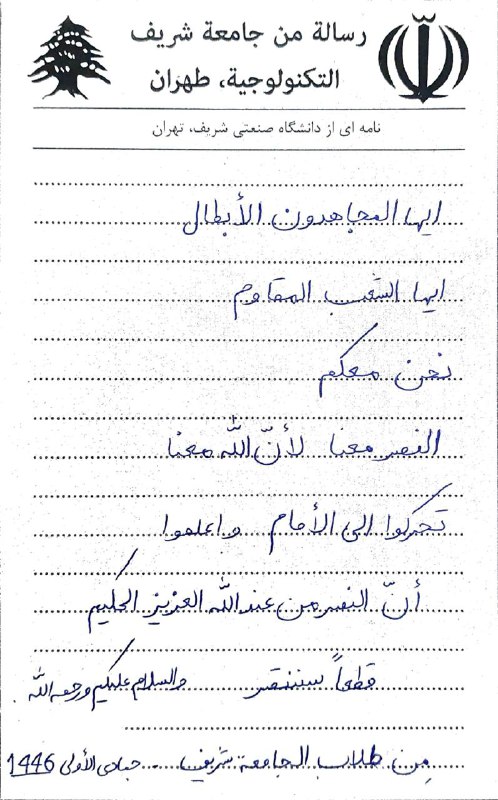 رسالة من جامعة شريف
التكنولوجية، طهران
نامه ای از دانشگاه صنعتی شریف، تهران
ايها المجاهدون الأبطال
ايها الشعب المقاوم
نحن معكم
النصر معنا لأنّ الله معنا
تحركوا الى الأمام واعلموا
أنّ النصر من عند الله العزيز الحكيم
قطعاً سننتصر والسلام عليكم ورحمة الله
مِن طلاب الجامعة شريف .. جمادى الأولى 1446